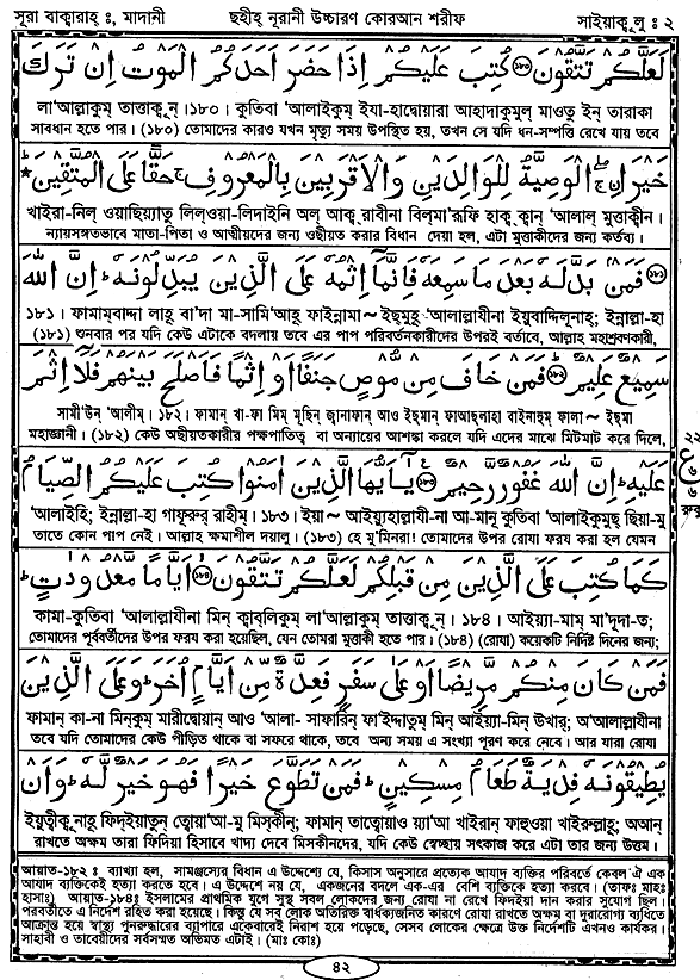 সূরা বাক্বারাহ্ ঃ, মাদানী ছহীহ্ নূরানী উচ্চারণ কোরআন শরীফ সাইয়াকূলু ঃ ২
لَعَلَّكُمْ تَتَّقُوْنَ ﴿١٨٠﴾ كُتِبَ عَلَيْكُمْ اِذَا حَضَرَ اَحَدَكُمُ الْمَوْتُ اِنْ تَرَكَ
লা'আল্লাকুম্ তাত্তাকূন্। ১৮০। কুতিবা 'আলাইকুম্ ইযা-হাদ্বোয়ারা আহাদাকুমুল্ মাওতু ইন্ তারাকা
সাবধান হতে পার। (১৮০) তোমাদের কারও যখন মৃত্যু সময় উপস্থিত হয়, তখন সে যদি ধন-সম্পত্তি রেখে যায় তবে
خَيْرَا ۨ الْوَصِيَّةُ لِلْوَالِدَيْنِ وَالْاَقْرَبِيْنَ بِالْمَعْرُوْفِ ۚ حَقًّا عَلَى الْمُتَّقِيْنَ ؕ
খাইরা-নিল্ ওয়াছিয়্যাতু লিল্ওয়া-লিদাইনি অল্ আক্ব্ রাবীনা বিল্মা'রূফি হাক্ ক্বান্ 'আলাল্ মুত্তাক্বীন।
ন্যায়সঙ্গতভাবে মাতা-পিতা ও আত্মীয়দের জন্য ওছীয়ত করার বিধান দেয়া হল, এটা মুত্তাকীদের জন্য কর্তব্য।
﴿١٨١﴾ فَمَنْۢ بَدَّلَهٗ بَعْدَ مَا سَمِعَهٗ فَاِنَّمَاۤ اِثْمُهٗ عَلَى الَّذِيْنَ يُبَدِّلُوْنَهٗ ؕ اِنَّ اللّٰهَ
১৮১। ফামাম্বাদ্দা লাহূ বা'দা মা-সামি'আহূ ফাইন্নামা ~ ইছ্মুহূ 'আলাল্লাযীনা ইয়ুবাদ্দিলূনাহ্; ইন্নাল্লা-হা
(১৮১) শুনবার পর যদি কেউ এটাকে বদলায় তবে এর পাপ পরিবর্তনকারীদের উপরই বর্তাবে, আল্লাহ মহাশ্রবণকারী,
سَمِيْعٌ عَلِيْمٌ ؕ ﴿١٨٢﴾ فَمَنْ خَافَ مِنْ مُّوْصٍ جَنَفًا اَوْ اِثْمًا فَاَصْلَحَ بَيْنَهُمْ فَلَاۤ اِثْمَ
সামী'উন্ 'আলীম্। ১৮২। ফামান্ খা-ফা মিম্ মূছিন্ জ্বানাফান্ আও ইছ্মান্ ফাআছ্লাহা বাইনাহুম্ ফালা ~ ইছ্মা
মহাজ্ঞানী। (১৮২) কেউ অছীয়তকারীর পক্ষপাতিত্ব বা অন্যায়ের আশঙ্কা করলে যদি এদের মাঝে মিটমাট করে দিলে,
২২
ع
عَلَيْهِ ؕ اِنَّ اللّٰهَ غَفُوْرٌ رَّحِيْمٌ ﴿١٨٣﴾ يٰۤاَيُّهَا الَّذِيْنَ اٰمَنُوْا كُتِبَ عَلَيْكُمُ الصِّيَامُ
'আলাইহি; ইন্নাল্লা-হা গাফূরুর্ রাহীম্। ১৮৩। ইয়া ~ আইয়্যুহাল্লাযী-না আ-মানূ কুতিবা 'আলাইকুমুছ্ ছিয়া-মু
তাতে কোন পাপ নেই। আল্লাহ ক্ষমাশীল দয়ালু। (১৮৩) হে মু'মিনরা! তোমাদের উপর রোযা ফরয করা হল যেমন
كَمَا كُتِبَ عَلَى الَّذِيْنَ مِنْ قَبْلِكُمْ لَعَلَّكُمْ تَتَّقُوْنَ ﴿١٨٤﴾ اَيَّامًا مَّعْدُوْدٰتٍ ؕ
কামা-কুতিবা 'আলাল্লাযীনা মিন্ ক্বাব্লিকুম্ লা'আল্লাকুম্ তাত্তাকূন্। ১৮৪। আইয়্যা-মাম্ মা'দূদা-ত;
তোমাদের পূর্ববর্তীদের উপর ফরয করা হয়েছিল, যেন তোমরা মুত্তাকী হতে পার। (১৮৪) (রোযা) কয়েকটি নির্দিষ্ট দিনের জন্য;
فَمَنْ كَانَ مِنْكُمْ مَّرِيْضًا اَوْ عَلٰى سَفَرٍ فَعِدَّةٌ مِّنْ اَيَّامٍ اُخَرَ ؕ وَعَلَى الَّذِيْنَ
ফামান্ কা-না মিন্কুম্ মারীদ্বোয়ান্ আও 'আলা- সাফারিন্ ফা'ইদ্দাতুম্ মিন্ আইয়্যা-মিন্ উখার্; অ'আলাল্লাযীনা
তবে যদি তোমাদের কেউ পীড়িত থাকে বা সফরে থাকে, তবে অন্য সময় এ সংখ্যা পূরণ করে নেবে। আর যারা রোযা
يُطِيْقُوْنَهٗ فِدْيَةٌ طَعَامُ مِسْكِيْنٍ ؕ فَمَنْ تَطَوَّعَ خَيْرًا فَهُوَ خَيْرٌ لَّهٗ ؕ وَاَنْ
ইয়ুত্বীকূনাহূ ফিদ্ইয়াতুন্ ত্বোয়া'আ-মু মিস্কীন্; ফামান্ তাত্বোয়াও য়্যা'আ খাইরান্ ফাহুওয়া খাইরুল্লাহূ; অআন্
রাখতে অক্ষম তারা ফিদিয়া হিসাবে খাদ্য দেবে মিসকীনদের, যদি কেউ স্বেচ্ছায় সৎকাজ করে এটা তার জন্য উত্তম।
আয়াত-১৮২ ঃ ব্যাখ্যা হল, সামঞ্জস্যের বিধান এ উদ্দেশ্যে যে, কিসাস অনুসারে প্রত্যেক আযাদ ব্যক্তির পরিবর্তে কেবল ঐ এক
আযাদ ব্যক্তিকেই হত্যা করতে হবে। এ উদ্দেশে নয় যে, একজনের বদলে এক-এর বেশি ব্যক্তিকে হত্যা করবে। (তাফঃ মাহঃ
হাসাঃ) আয়াত-১৮৪ঃ ইসলামের প্রাথমিক যুগে সুস্থ সবল লোকদের জন্য রোযা না রেখে ফিদইয়া দান করার সুযোগ ছিল।
পরবর্তীতে এ নির্দেশ রহিত করা হয়েছে। কিন্তু যে সব লোক অতিরিক্ত বার্ধক্যজনিত কারণে রোযা রাখতে অক্ষম বা দুরারোগ্য ব্যধিতে
আক্রান্ত হয়ে স্বাস্থ্য পুনরুদ্ধারের ব্যাপারে একেবারেই নিরাশ হয়ে পড়েছে, সেসব লোকের ক্ষেত্রে উক্ত নির্দেশটি এখনও কার্যকর।
সাহাবী ও তাবেয়ীদের সর্বসম্মত অভিমত এটাই। (মাঃ কোঃ)
৪২